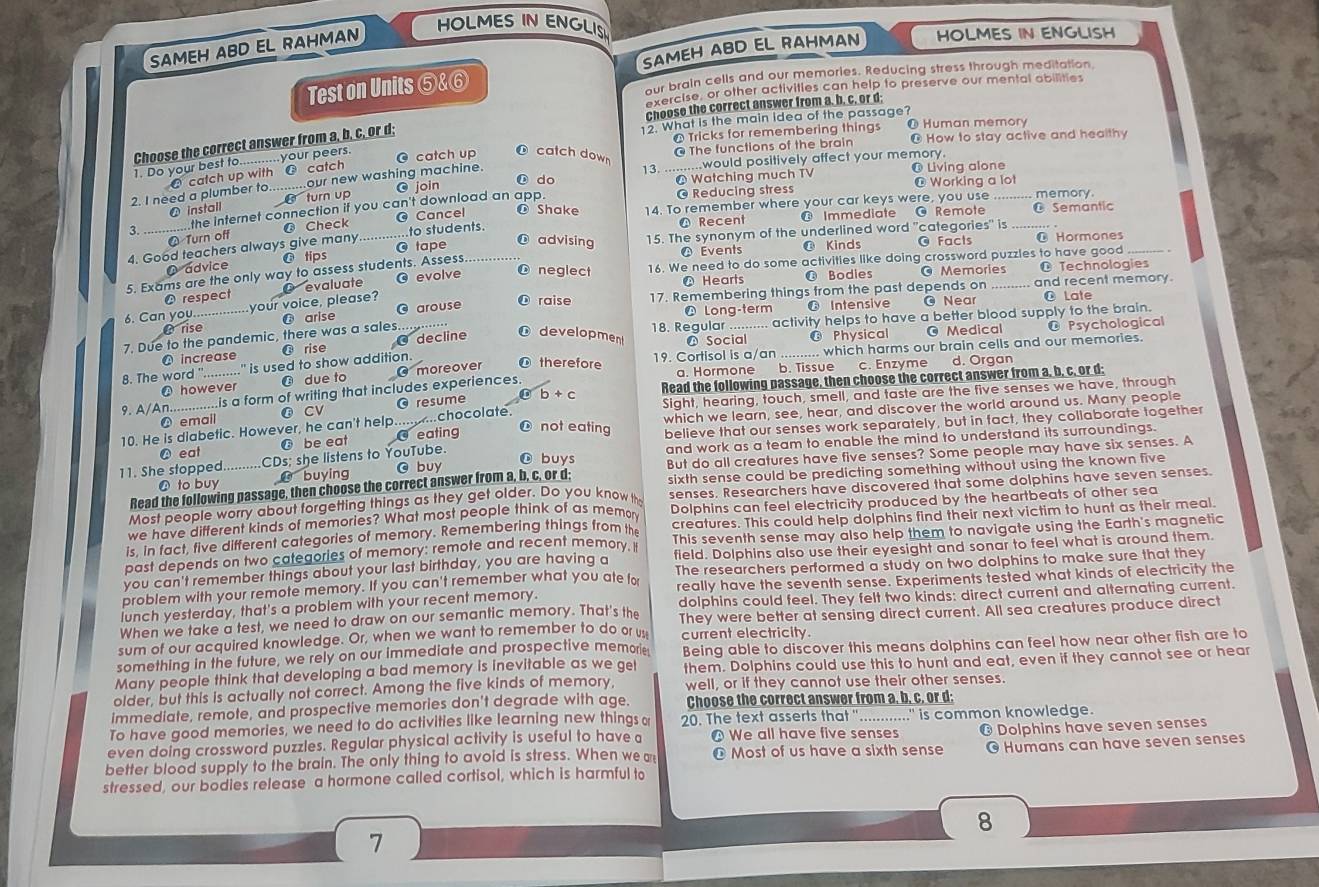 SAMEH ABD EL RAHMAN
HOLMES IN ENGLISH
Test on Units ⑤&⑥
Choose the correct answer from a, b, c, or d:
1. Do your best to...........your peers.
A catch up with B catch C catch up D catch down
2. I need a plumber to..........our new washing machine.
A install B turn up C join D do
3. .............the internet connection if you can't download an app.
A Turn off B Check C Cancel D Shake
4. Good teachers always give many.............to students.
A advice B tips C tape D advising
5. Exams are the only way to assess students. Assess..............
A respect B evaluate C evolve D neglect
6. Can you...............your voice, please?
A rise B arise C arouse D raise
7. Due to the pandemic, there was a sales.............
A increase B rise C decline D development
8. The word "..........." is used to show addition.
A however B due to C moreover D therefore
9. A/An.............is a form of writing that includes experiences.
A email B CV C resume D b + c
10. He is diabetic. However, he can't help...........chocolate.
A eat B be eat C eating D not eating
11. She stopped..........CDs; she listens to YouTube.
A to buy B buying C buy D buys
Read the following passage, then choose the correct answer from a, b, c, or d:
Most people worry about forgetting things as they get older. Do you know
we have different kinds of memories? What most people think of as memory
is, in fact, five different categories of memory. Remembering things from the
past depends on two categories of memory: remote and recent memory. If
you can't remember things about your last birthday, you are having a
problem with your remote memory. If you can't remember what you ate for
lunch yesterday, that's a problem with your recent memory.
When we take a test, we need to draw on our semantic memory. That's the
sum of our acquired knowledge. Or, when we want to remember to do or
something in the future, we rely on our immediate and prospective memories
Many people think that developing a bad memory is inevitable as we get
older, but this is actually not correct. Among the five kinds of memory,
immediate, remote, and prospective memories don't degrade with age.
To have good memories, we need to do activities like learning new things or
even doing crossword puzzles. Regular physical activity is useful to have a
better blood supply to the brain. The only thing to avoid is stress. When we are
stressed, our bodies release a hormone called cortisol, which is harmful to
7
SAMEH ABD EL RAHMAN
HOLMES IN ENGLISH
our brain cells and our memories. Reducing stress through meditation,
exercise, or other activities can help to preserve our mental abilities
Choose the correct answer from a, b, c, or d:
12. What is the main idea of the passage?
A Tricks for remembering things B Human memory
C The functions of the brain D How to stay active and healthy
13. ..........would positively affect your memory.
A Watching much TV B Living alone
C Reducing stress D Working a lot
14. To remember where your car keys were, you use .......... memory.
A Recent B Immediate C Remote D Semantic
15. The synonym of the underlined word "categories" is .......... .
A Events B Kinds C Facts D Hormones
16. We need to do some activities like doing crossword puzzles to have good .......... .
A Hearts B Bodies C Memories D Technologies
17. Remembering things from the past depends on .......... and recent memory.
A Long-term B Intensive C Near D Late
18. Regular .......... activity helps to have a better blood supply to the brain.
A Social B Physical C Medical D Psychological
19. Cortisol is a/an .......... which harms our brain cells and our memories.
a. Hormone b. Tissue c. Enzyme d. Organ
Read the following passage, then choose the correct answer from a, b, c, or d:
Sight, hearing, touch, smell, and taste are the five senses we have, through
which we learn, see, hear, and discover the world around us. Many people
believe that our senses work separately, but in fact, they collaborate together
and work as a team to enable the mind to understand its surroundings.
But do all creatures have five senses? Some people may have six senses. A
sixth sense could be predicting something without using the known five
senses. Researchers have discovered that some dolphins have seven senses.
Dolphins can feel electricity produced by the heartbeats of other sea
creatures. This could help dolphins find their next victim to hunt as their meal.
This seventh sense may also help them to navigate using the Earth's magnetic
field. Dolphins also use their eyesight and sonar to feel what is around them.
The researchers performed a study on two dolphins to make sure that they
really have the seventh sense. Experiments tested what kinds of electricity the
dolphins could feel. They felt two kinds: direct current and alternating current.
They were better at sensing direct current. All sea creatures produce direct
current electricity.
Being able to discover this means dolphins can feel how near other fish are to
them. Dolphins could use this to hunt and eat, even if they cannot see or hear
well, or if they cannot use their other senses.
Choose the correct answer from a, b, c, or d:
20. The text asserts that "............" is common knowledge.
A We all have five senses B Dolphins have seven senses
D Most of us have a sixth sense C Humans can have seven senses
8